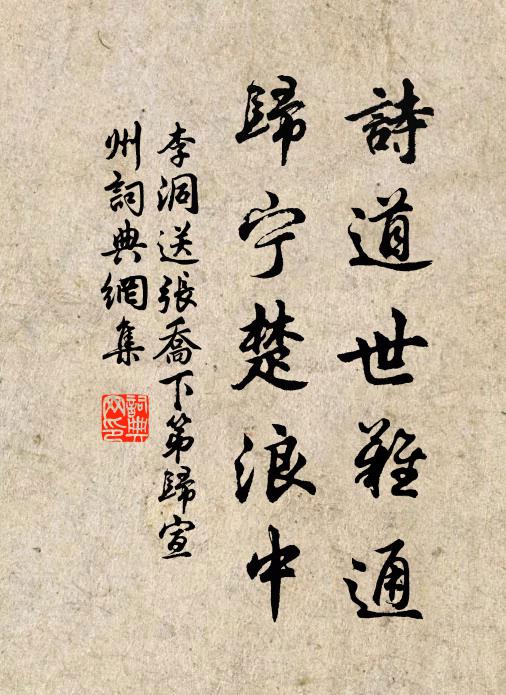 詩道世難通
歸宁楚浪中
李洞送張喬下第歸宣
州詞典網集
詞典
网印